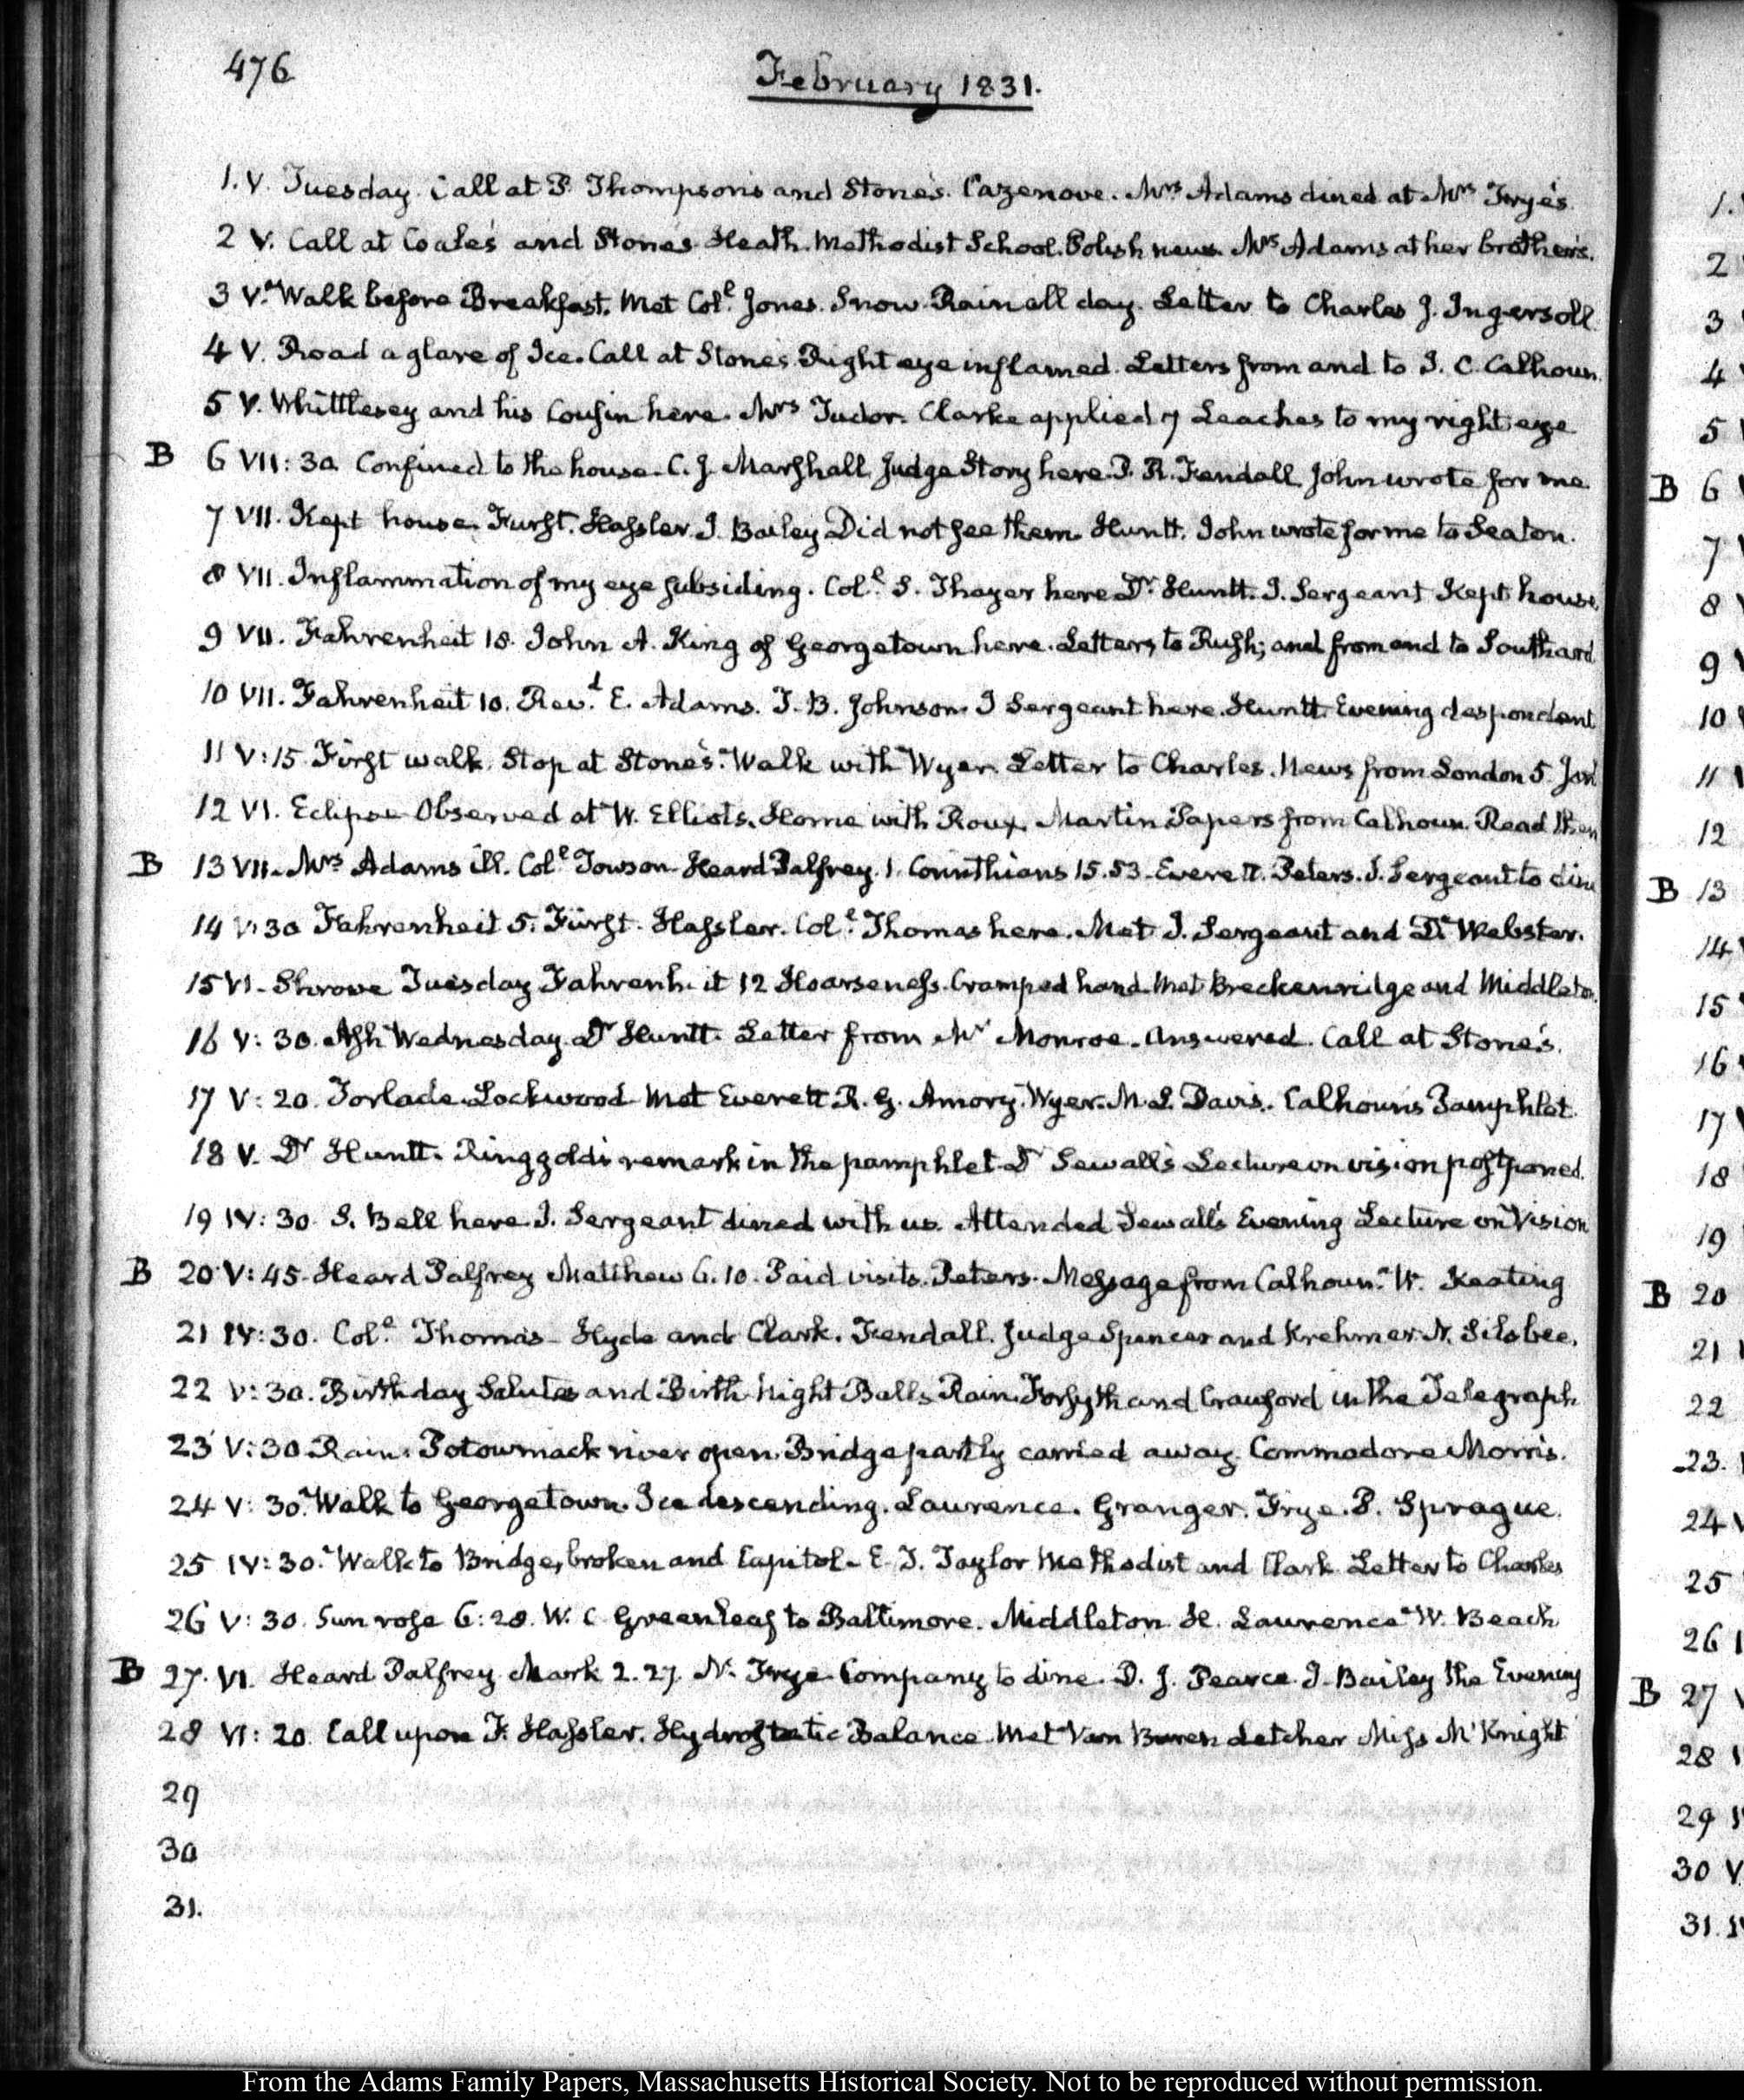 476
February 1831.
1. V. Tuesday. Call at P. Thompson's and Stone's. Cazenove. Mrs Adams dined at Mrs Frye's.
2 V. Call at Coale's and Stone's. Heath. Methodist School. Polish news. Mrs Adams at her brother's.
3 V. Walk before Breakfast. Met Col.l Jones. Snow. Rain all day. Letter to Charles J. Ingersoll.
4 V. Road a glare of Ice. Call at Stone's. Right eye inflamed. Letters from and to J. C. Calhoun.
5 V. Whittlesey and his Cousin here. Mrs Tudor. Clarke applied 7 Leaches to my right eye
B 6 VII:30. Confined to the house. C. J. Marshall, Judge Story here. J. R. Kendall. John wrote for me.
7 VII. Kept house. Furst. Hassler. J. Bailey Did not see them. Huntt. John wrote for me to Seaton.
8 VII. Inflammation of my eye subsiding. Col.l S. Thayer here Dr Huntt. J. Sergeant Kept house.
9 VII. Fahrenheit 18. John A. King of Georgetown here. Letters, to Rush; and from and to Southard
10 VII. Fahrenheit 10. Rev.d E. Adams. J. B. Johnson. J Sergeant here. Huntt. Evening despondent
11 V:15. First walk. Stop at Stone's. Walk with Wyer. Letter to Charles. News from London 5. Jan
12 VI. Eclipse Observed at W. Elliot's. Home with Roux. Martin Papers from Calhoun. Read them
B 13 VII. Mrs Adams ill. Col.l Towson. Heard Palfrey. 1. Corinthians 15.53. Everett. Peters. J. Sergeant to dine
14 V:30 Fahrenheit 5. Fürst. Hassler. Col.l Thomas here. Met J. Sergeant and D. Webster.
15 VI. Shrove Tuesday Fahrenheit 12 Hoarseness. Cramped hand. Met Breckenridge and Middleton.
16 V:30. Ash Wednesday. Dr Huntt. Letter from Mr Monroe. Answered. Call at Stone's.
17 V:20. Torlade. Lockwood. Met Everett. R. G. Amory. Wyer. M. L. Davis. Calhoun's Pamphlet.
18 V. Dr Huntt. Ringgold's remark in the pamphlet. Dr Sewall's Lecture on vision postponed.
19 IV:30. S. Bell here. J. Sergeant dined with us. Attended Sewall's Evening Lecture on Vision
B 20 V:45. Heard Palfrey Matthew 6.10. Paid visits. Peters. Message from Calhoun. W. Keating
21 IV:30. Col.l Thomas. Hyde and Clark. Kendall. Judge Spencer and Krehmer. N. Silsbee.
22 V:30. Birthday Salutes and Birth Night Balls. Rain. Forsyth and Crawford in the Telegraph
23 V:30 Rain. Potowmack river open. Bridge partly carried away. Commodore Morris.
24 V:30. Walk to Georgetown. Ice descending. Laurence. Granger. Frye. P. Sprague.
25 IV:30. Walk to Bridge, broken and Capitol. E. T. Taylor Methodist and Clark. Letter to Charles
26 V:30. Sun rose 6:28. W. C Greenleaf to Baltimore. Middleton. H. Laurence. W. Beach
B 27. VI. Heard Palfrey Mark 2.27. N. Frye. Company to dine. D. J. Pearce. J. Bailey the Evening
28 VI:20. Call upon F. Hassler. Hydrostatic Balance. Met Van Buren Letcher Miss M'Knight
29
30
31.
1.
2
3
4
5
B 6
7
8
9
10
11
12
B 13
14
15
16
17
18
19
B 20
21
22
23.
24
25
26
B 27
28
29
30 V
31.
From the Adams Family Papers, Massachusetts Historical Society. Not to be reproduced without permission.